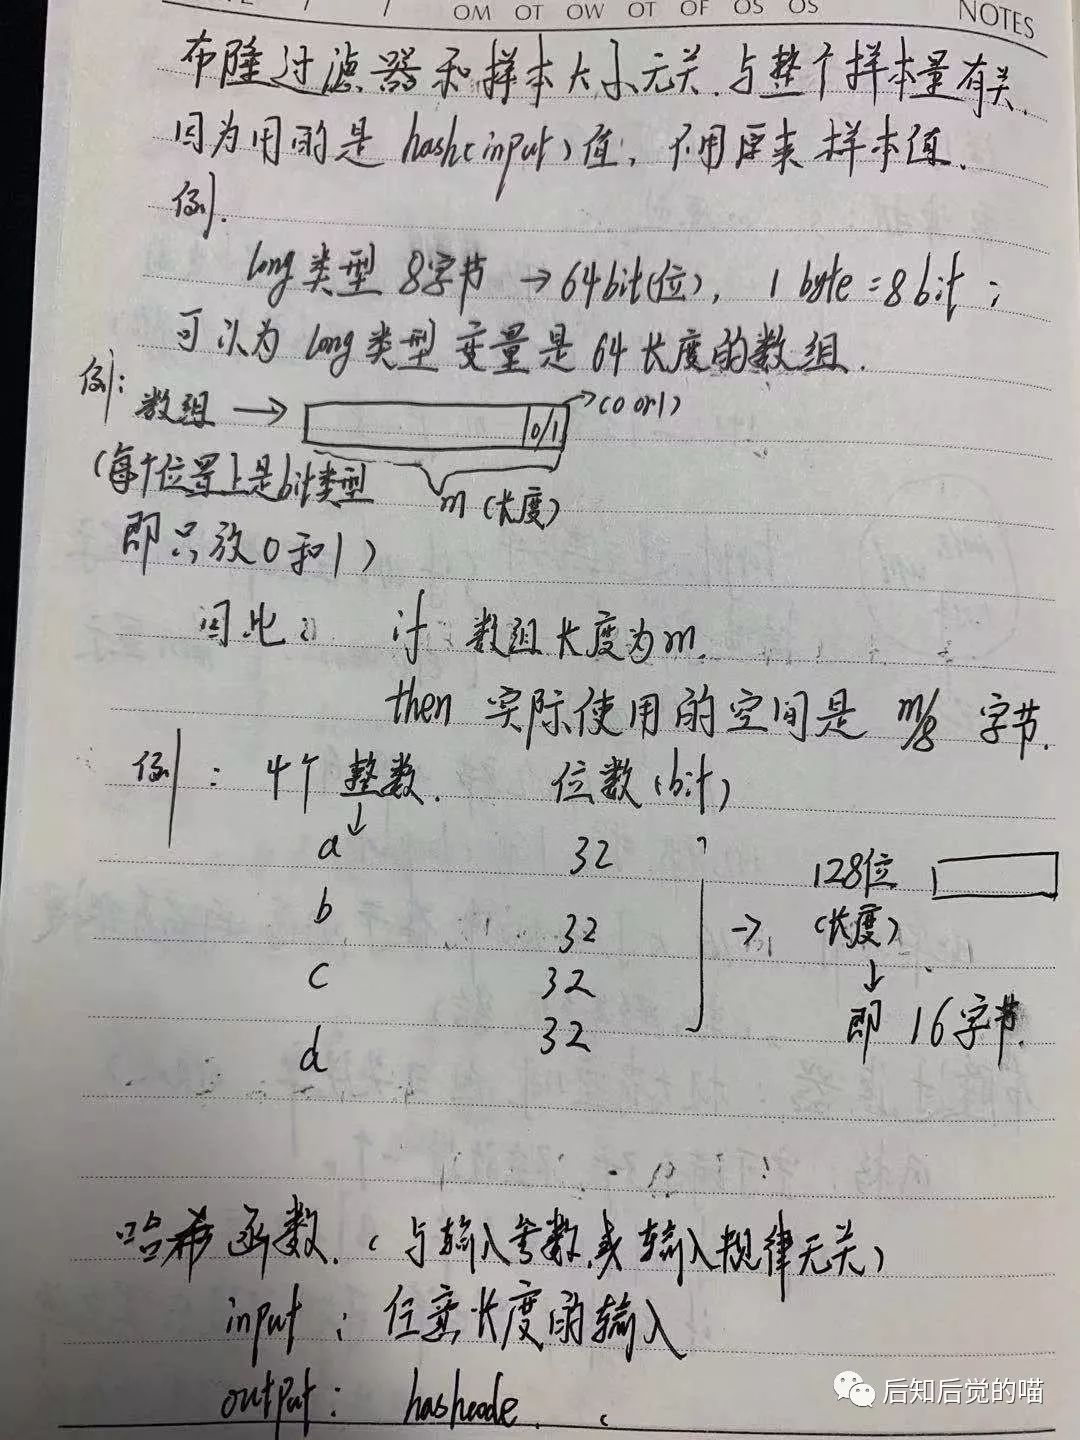 OM OT OW OT OF OS OS
NOTES
布隆过滤器和样本大小无关.与整个样本量有关.
因为用的是hash(input)值,不用原来样本值.
例.
long类型 8字节 → 64bit(位), 1 byte = 8bit;
可以为long类型变量是64长度的数组.
例:
数组 → 0/1 → (0 or 1)
(每个位置上是bit类型 m (长度)
即只放0和1)
因此: if 数组长度为m.
then 实际使用的空间是 m/8 字节.
例: 4个整数. 位数(bit)
a 32
b 32
c 32
d 32
→ 128位
(长度)
↓
即 16字节.
哈希函数.(与输入参数或输入规律无关)
input: 任意长度的输入
output: hashcode.
后知后觉的喵